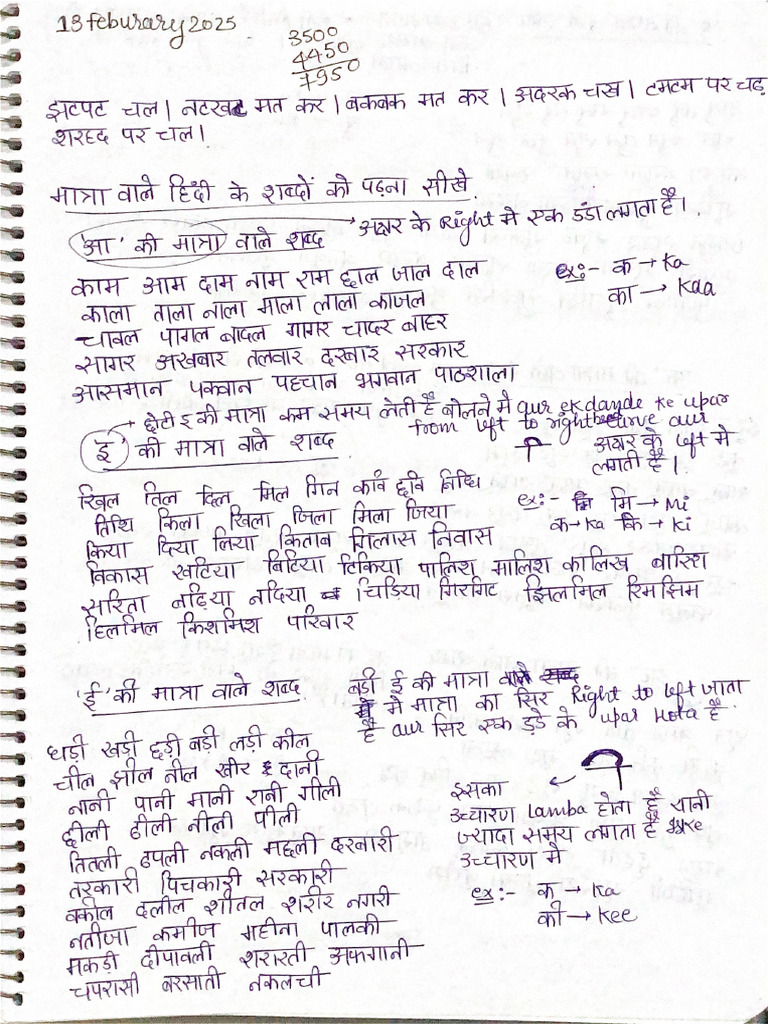 13 feburary 2025
3500
4450
7950
झटपट चल। नटखट मत कर। बकबक मत कर। अदरक चख। टमटम पर चढ़
शरहद पर चल।
मात्रा वाले हिंदी के शब्दों को पढ़ना सीखे
'आ' की मात्रा वाले शब्द → अक्षर के Right में एक डंडा लगता है।
काम आम दाम नाम राम छाल जाल दाल
काला ताला नाला माला लाला काजल
चावल पागल बादल गागर चादर बाहर
सागर अखबार तलवार दरबार सरकार
आसमान पकवान पहचान भगवान पाठशाला
ex:- क → Ka
का → Kaa
→ छोटी इ की मात्रा कम समय लेती है बोलने में aur ek dayde ke upar
from left to right curve aur
अक्षर के left में
लगती है।
'इ' की मात्रा वाले शब्द
खिल तिल दिल मिल गिन कवि छवि निधि
तिथि किला खिला जिला मिला जिया
किया दिया लिया किताब गिलास निवास
विकास खटिया बिटिया टिकिया पालिश मालिश कालिख बारिश
सरिता बढ़िया नदिया चिड़िया गिरगिट झिलमिल रिमझिम
हिलमिल किशमिश परिवार
ex:- मि → Mi
क → Ka कि → Ki
'ई' की मात्रा वाले शब्द
बड़ी ई की मात्रा वाले शब्द
में मात्रा का सिर Right to left जाता
है aur सिर एक डंडे के upar hota है
घड़ी खड़ी छड़ी बड़ी लड़ी कील
चील झील नील खीर दानी
नानी पानी मानी रानी गीली
छीली ढीली नीली पीली
तितली ढपली नकली मछली दरबारी
तरकारी पिचकारी सरकारी
वकील दलील शीतल शरीर नगरी
नतीजा कमीज महीना पालकी
मकड़ी दीपावली शरारती अफगानी
चपरासी बरसाती नकलची
इसका
उच्चारण lamba होता है यानी
ज्यादा समय लगता है iske
उच्चारण में
ex:- क → Ka
की → Kee